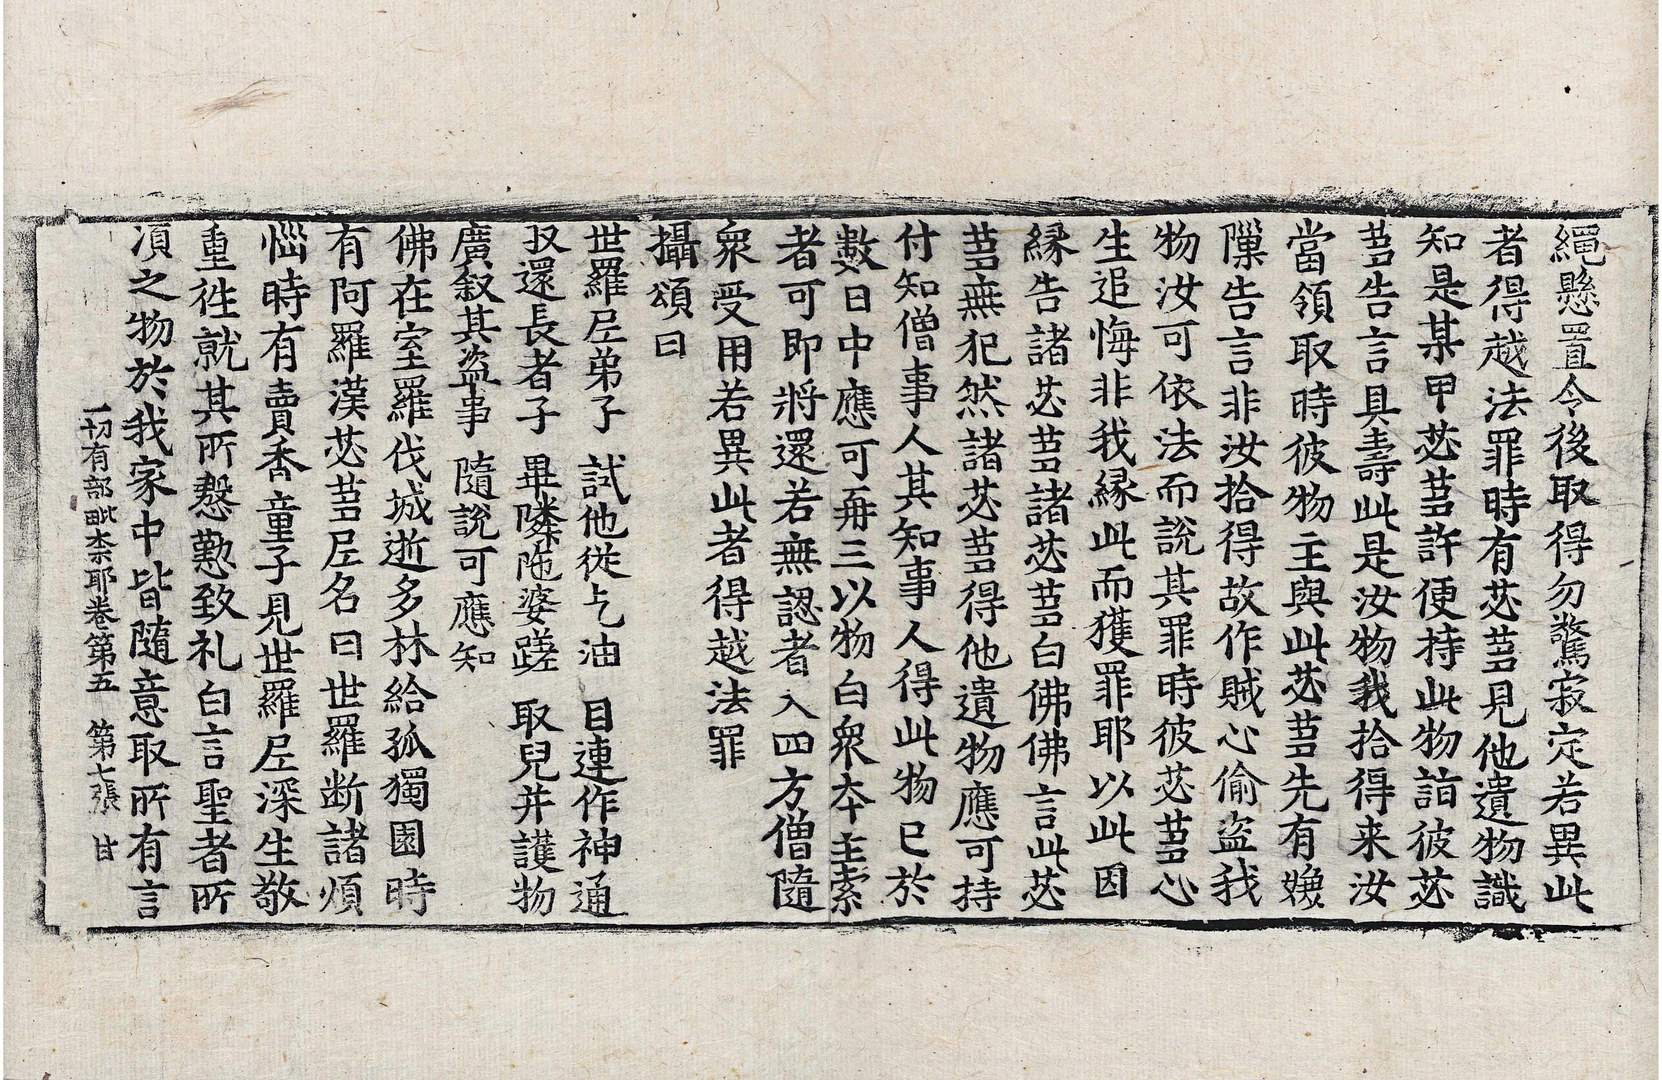 繩懸置令後取得勿驚寂定若異此
者得越法罪時有苾芻見他遺物識
知是某甲苾芻許便持此物詣彼苾
芻告言具壽此是汝物我拾得来汝
當領取時彼物主與此苾芻先有嫌
隟告言非汝拾得故作賊心偷盗我
物汝可依法而說其罪時彼苾芻心
生追悔非我縁此而獲罪耶以此因
縁告諸苾芻諸苾芻白佛佛言此苾
芻無犯然諸苾芻得他遺物應可持
付知僧事人其知事人得此物已於
數日中應可再三以物白衆本主索
者可即將還若無認者入四方僧隨
衆受用若異此者得越法罪
攝頌曰
世羅尼弟子 試他從乞油 目連作神通
㕛還長者子 畢隣陁婆蹉 取兒并護物
廣叙其盜事 隨說可應知
佛在室羅伐城逝多林給孤獨園時
有阿羅漢苾芻尼名曰世羅断諸煩
惱時有賣香童子見世羅尼深生敬
重徃就其所慇懃致礼白言聖者所
湏之物於我家中皆隨意取所有言
一切有部毗柰耶卷第五 第七張 甘